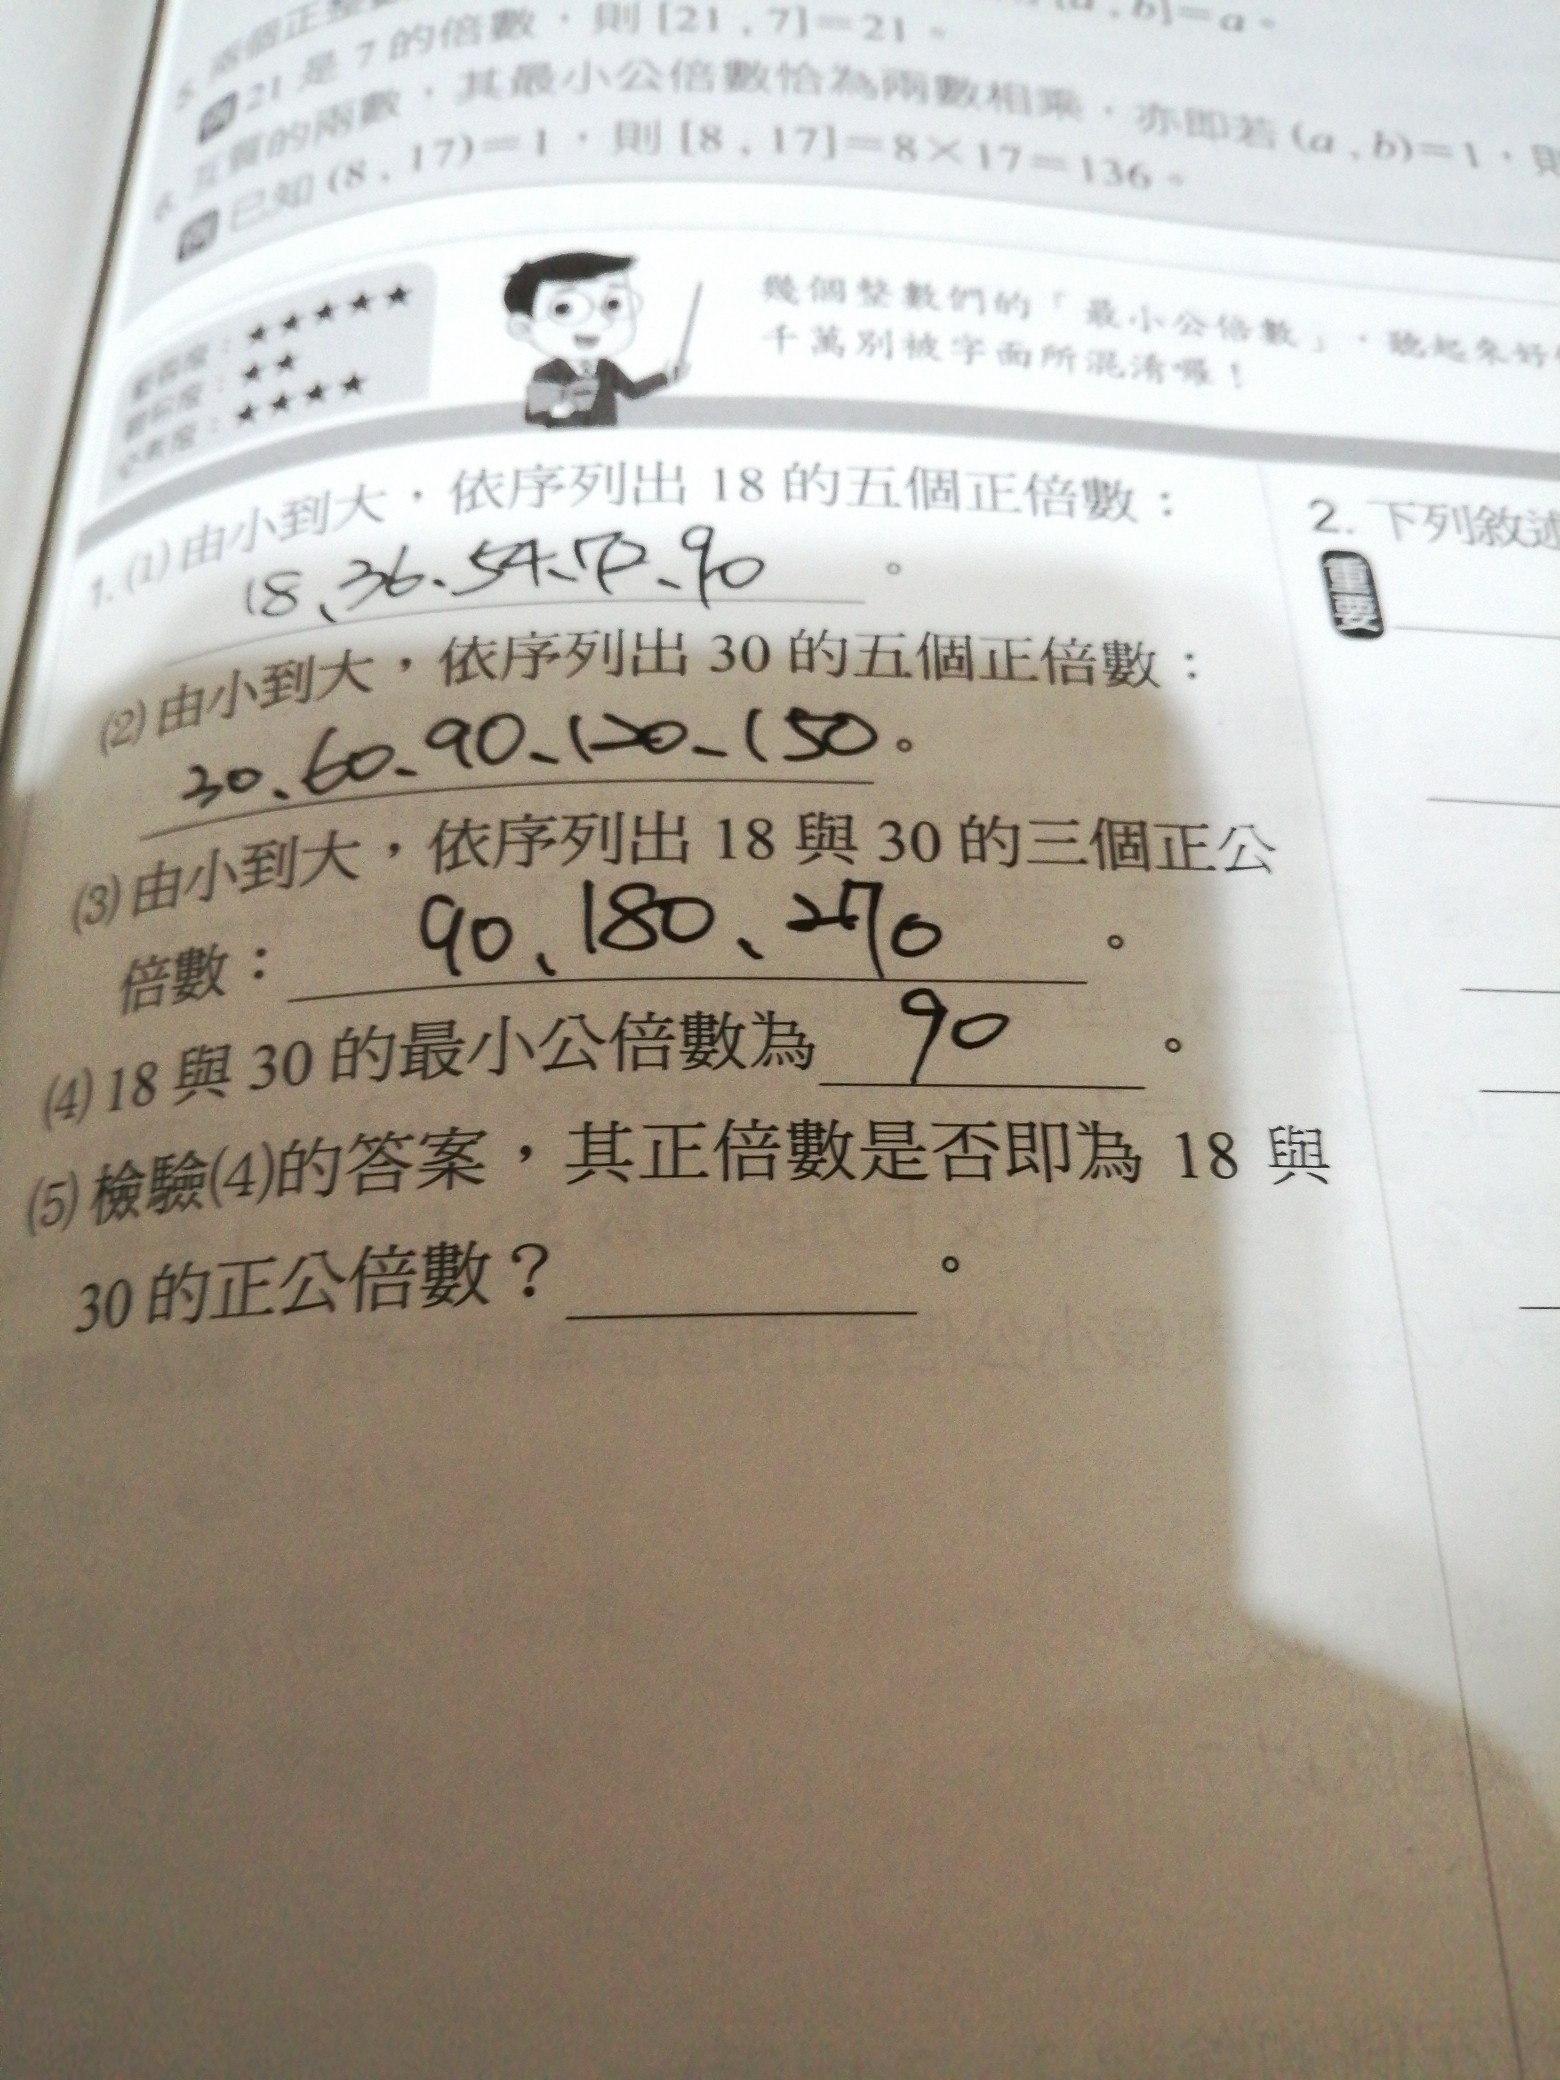 5. 兩個正整數
[a , b]=a。
例 21 是 7 的倍數，則 [21 , 7]=21。
6. 互質的兩數，其最小公倍數恰為兩數相乘，亦即若 (a , b)=1，則
例 已知 (8 , 17)=1，則 [8 , 17]=8×17=136。
幾個整數們的「最小公倍數」，聽起來好
千萬別被字面所混淆喔！
：★★★★★
：★★
：★★★★
1. (1) 由小到大，依序列出 18 的五個正倍數：
18、36、54、72、90。
(2) 由小到大，依序列出 30 的五個正倍數：
30、60、90、120、150。
(3) 由小到大，依序列出 18 與 30 的三個正公
倍數：90、180、270。
(4) 18 與 30 的最小公倍數為 90。
(5) 檢驗(4)的答案，其正倍數是否即為 18 與
30 的正公倍數？ 。
2. 下列敘述
重要